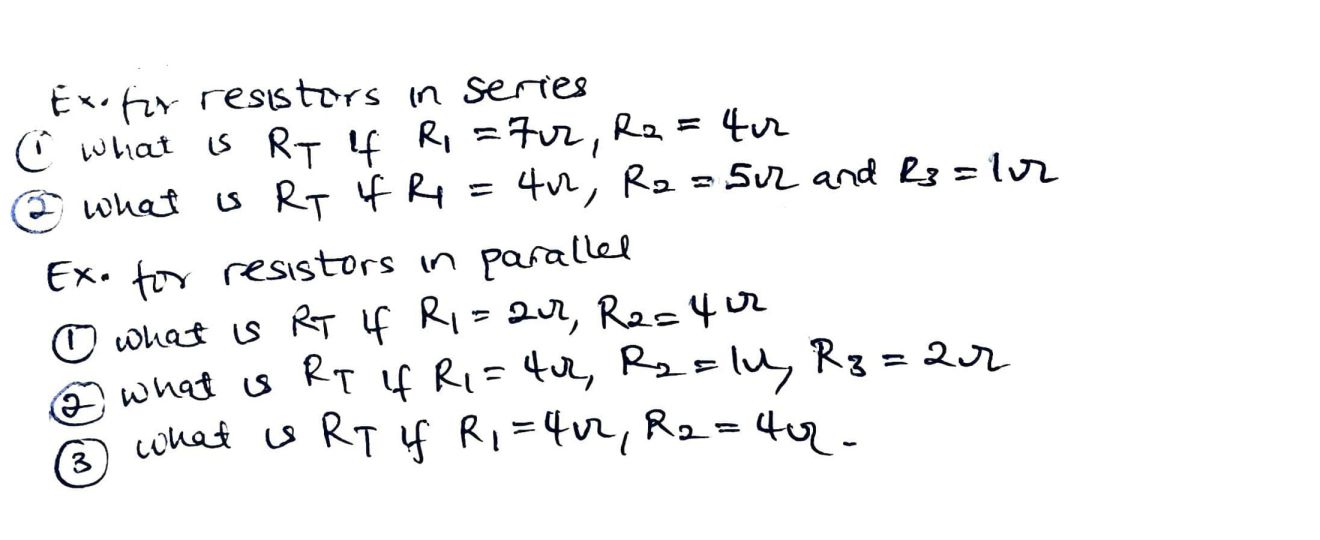 Ex. for resistors in series
① what is RT if R1 = 7Ω, R2 = 4Ω
② what is RT if R1 = 4Ω, R2 = 5Ω and R3 = 1Ω
Ex. for resistors in parallel
① what is RT if R1 = 2Ω, R2 = 4Ω
② what is RT if R1 = 4Ω, R2 = 1Ω, R3 = 2Ω
③ what is RT if R1 = 4Ω, R2 = 4Ω.